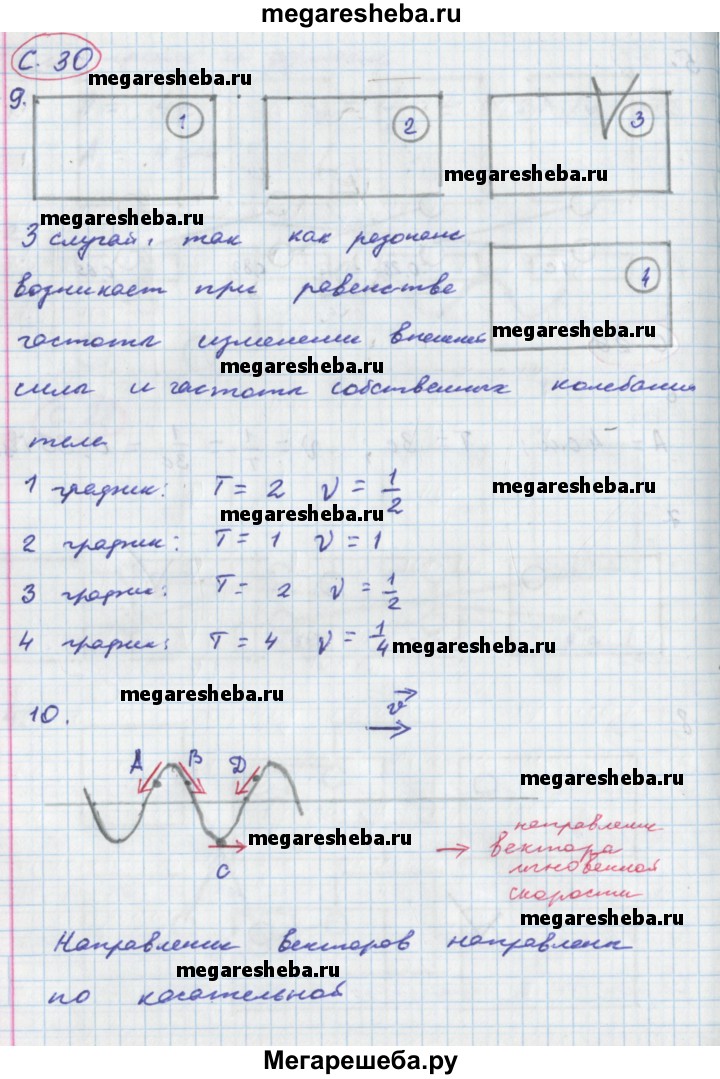 megaresheba.ru
С. 30
megaresheba.ru
9.
1
2
3
megaresheba.ru
megaresheba.ru
3 случай, так как резонанс
4
возникает при равенстве
megaresheba.ru
частоты изменении внешней
megaresheba.ru
силы и частоты собственных колебания
тела
1 график: T = 2 ν = 1/2
megaresheba.ru
megaresheba.ru
2 график: T = 1 ν = 1
3 график: T = 2 ν = 1/2
4 график: T = 4 ν = 1/4
megaresheba.ru
megaresheba.ru
10.
v
A B D
megaresheba.ru
C
megaresheba.ru
→ направление
вектора
мгновенной
скорости
megaresheba.ru
Направление векторов направлены
megaresheba.ru
по касательной
Мегарешеба.ру